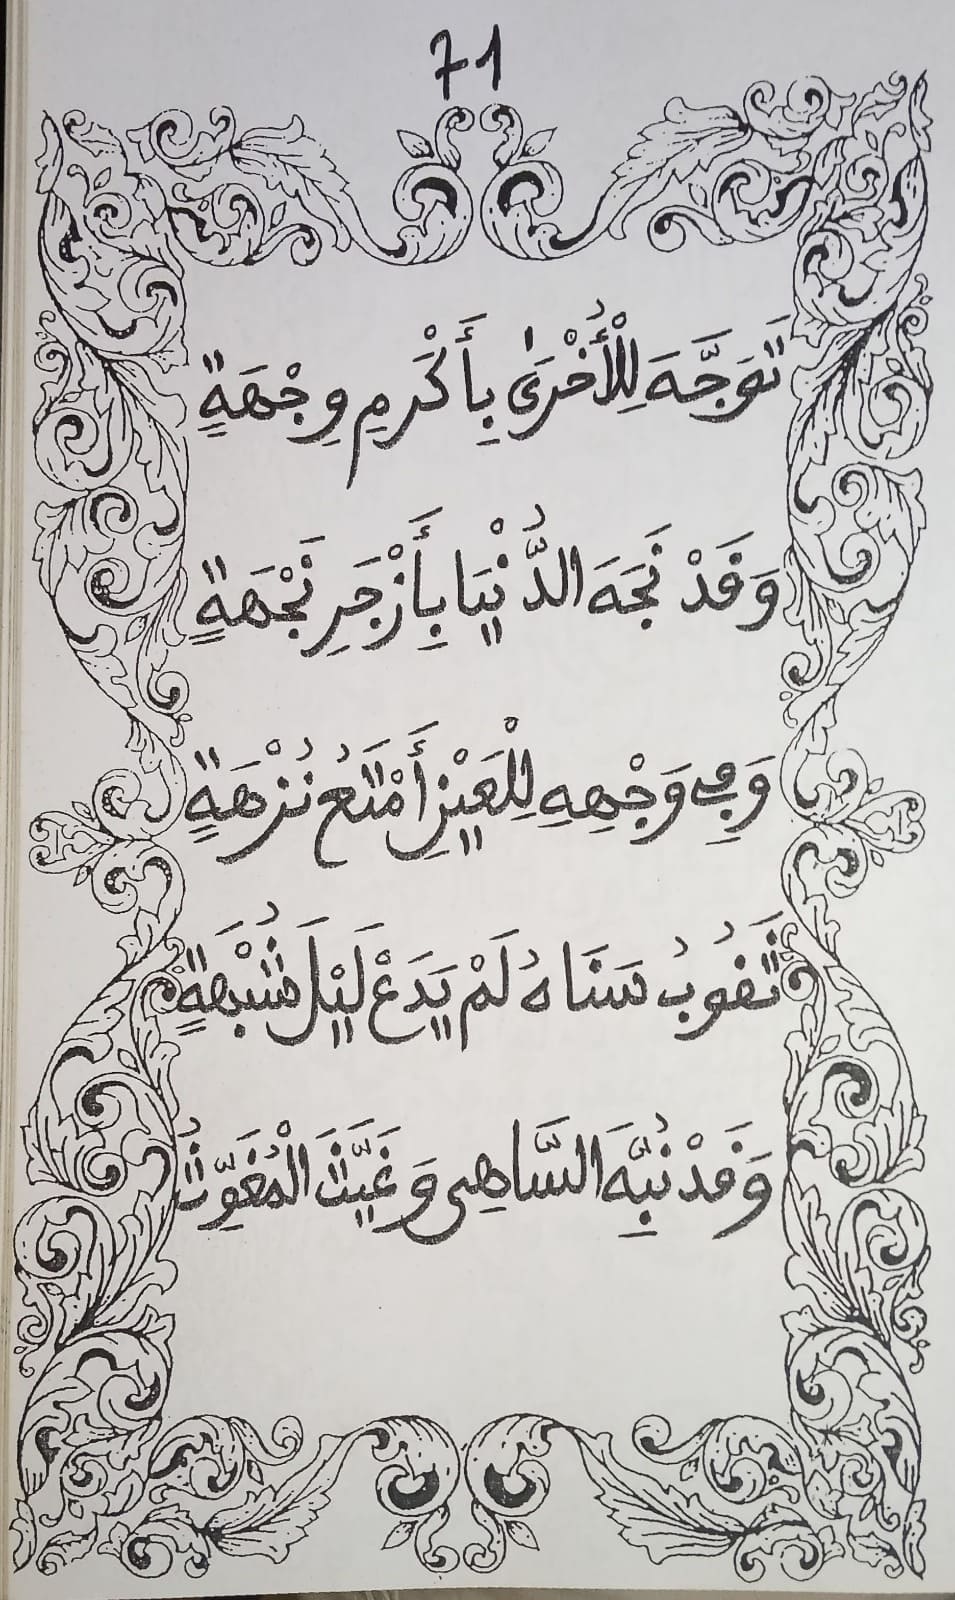 71
تَوَجَّهَ لِلْأُخْرَىٰ بِأَكْرَمِ وِجْهَةٍ
وَقَدْ نَجَهَ الدُّنْيَا بِأَزْجَرِ نَجْهَةٍ
وَفِي وَجْهِهِ لِلْعَيْنِ أَمْتَعُ نُزْهَةٍ
ثَقُوبُ سَنَاهُ لَمْ يَدَعْ لَيْلَ شُبْهَةٍ
وَقَدْ نَبَّهَ السَّاهِي وَغَيَّثَ الْمُغَوِّثُ